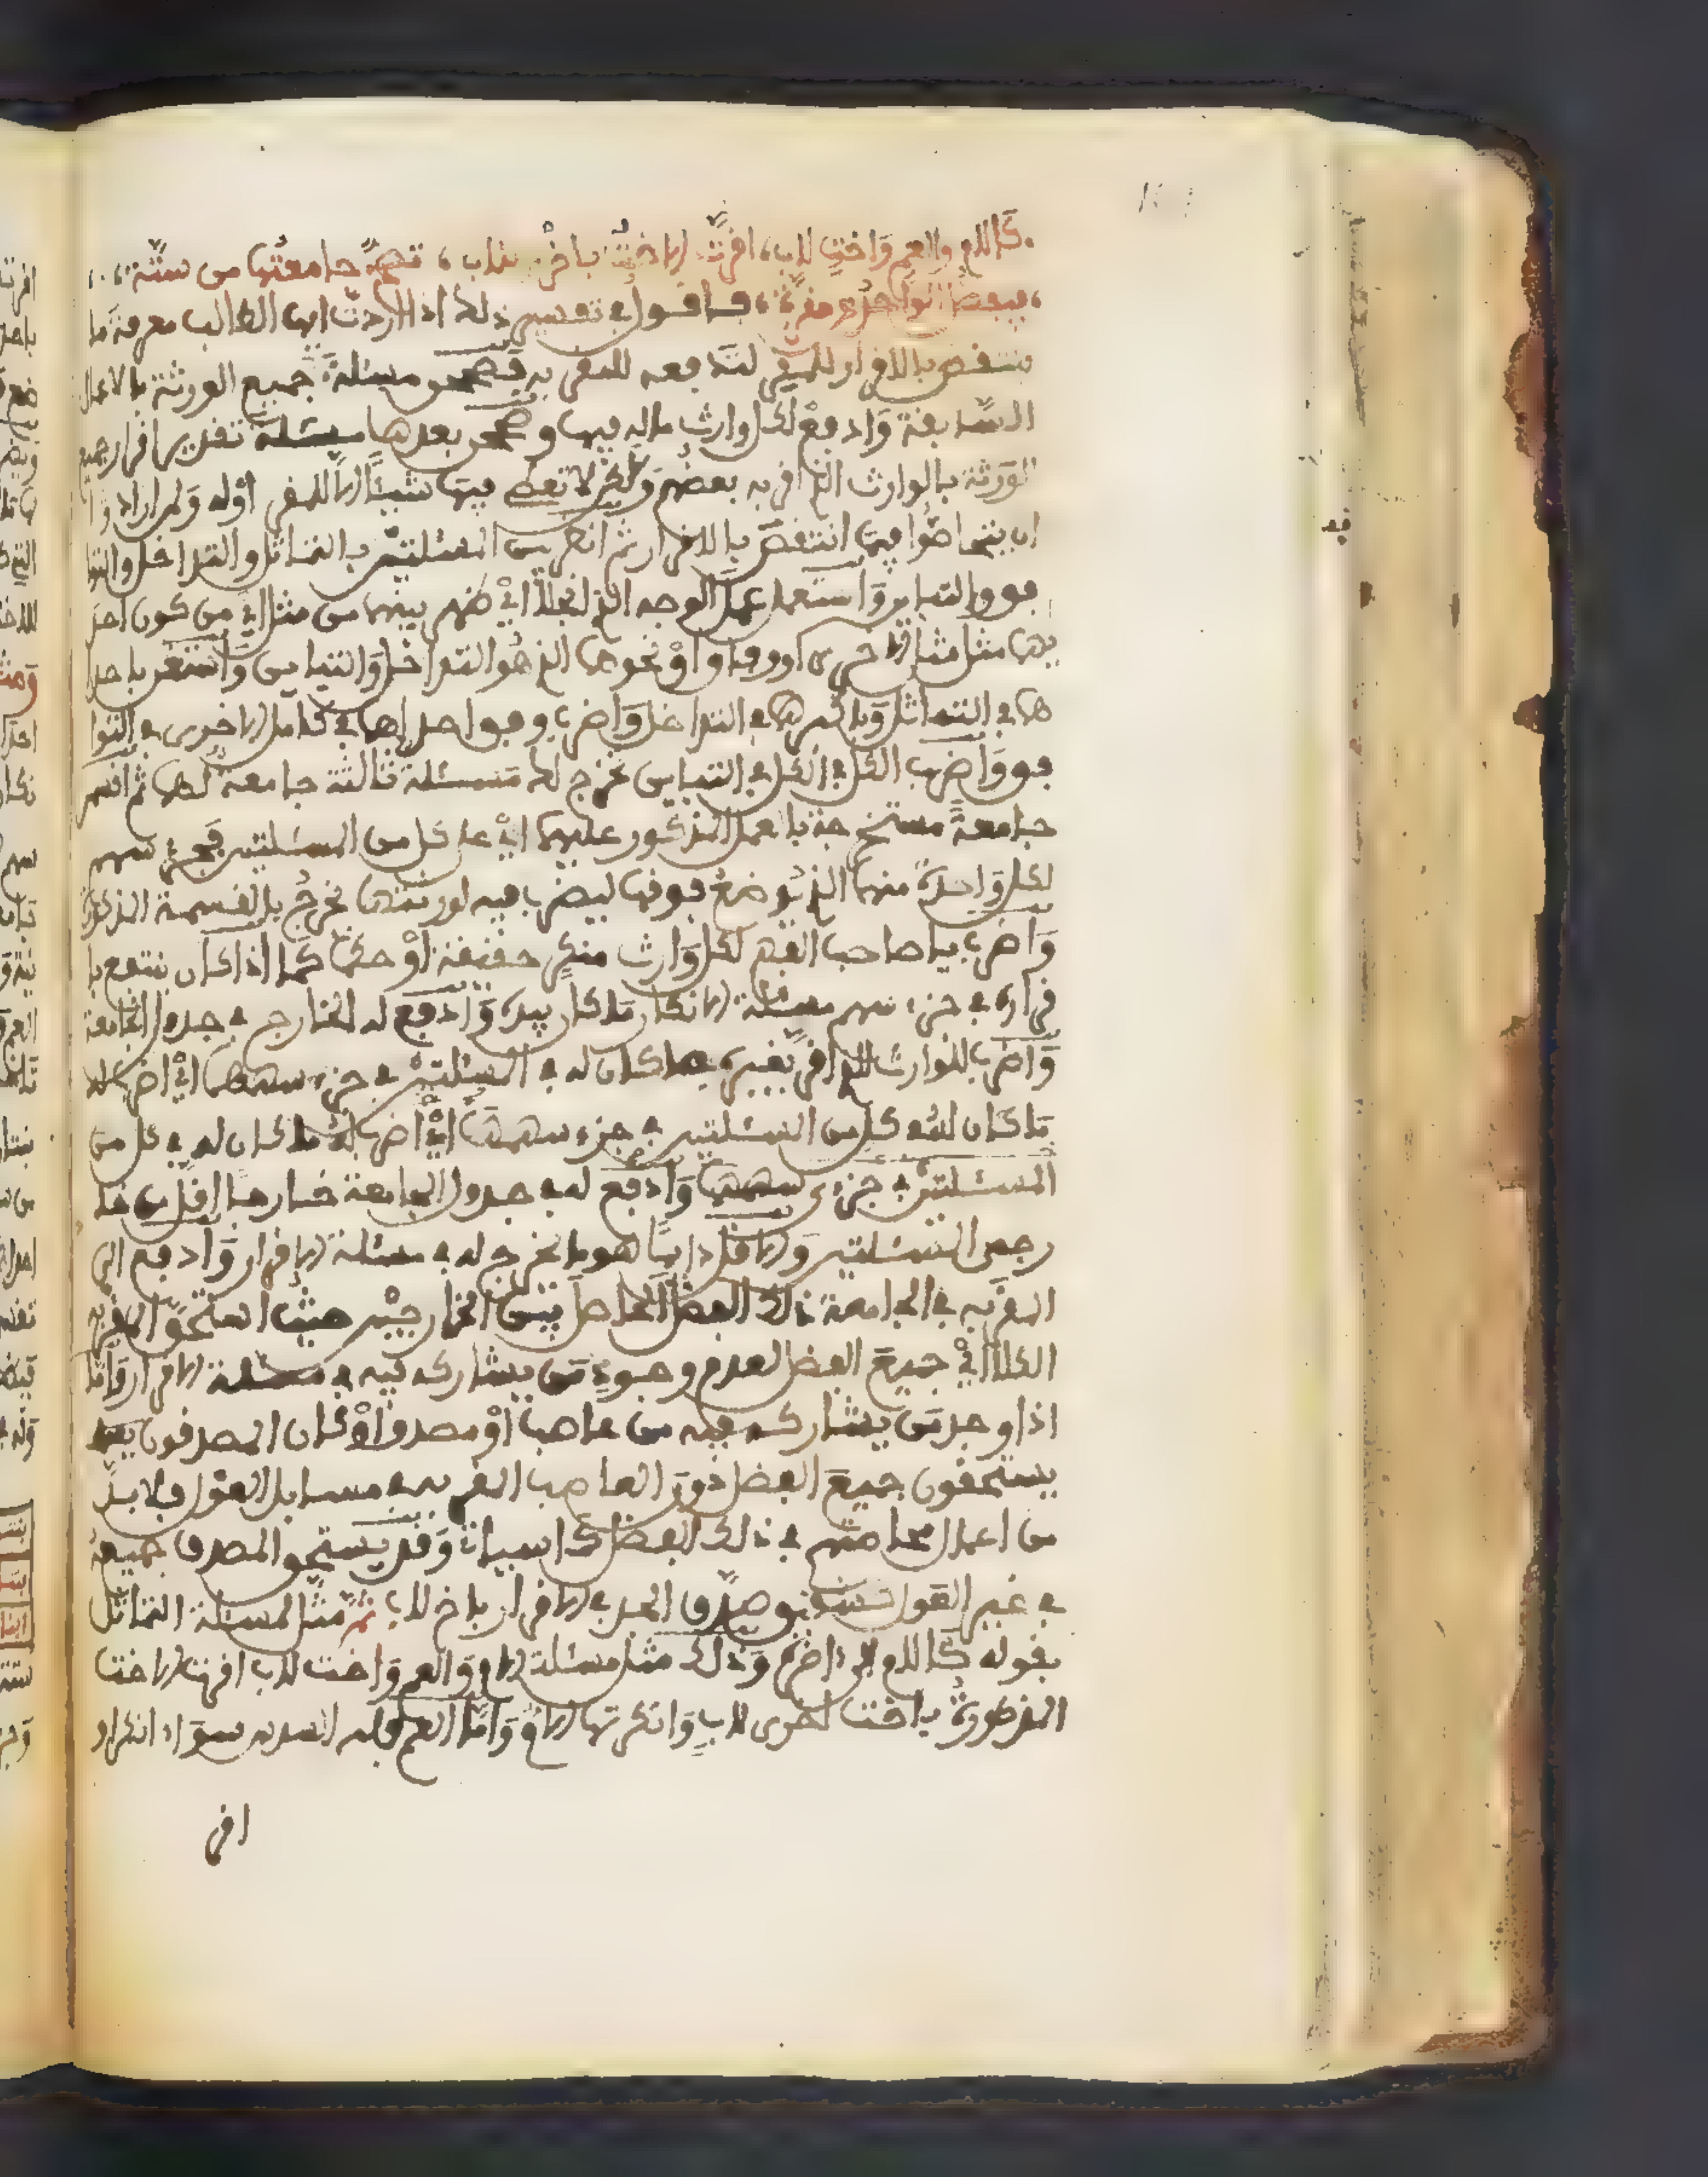 كالام والعم واخت لاب، اقرت الاخت باخرى لاب، تصح جامعتها من ستة،
فاقول في تفسير ذلك اذا اردت ايها الطالب معرفة ما
ينتقص بالاقرار للمقر لتدفعه للمقر به فصحح مسئلة جميع الورثة بالاعمال
السابقة وادفع لكل وارث ماله فيها وصحح بعدها مسئلة تقدير اقرار جميع
الورثة بالوارث الذي اقر به بعضهم ولكن لا تعط فيها شيئا الا للمقر او له ولمن اراد وا
ان يتحاصوا فيما انتقص بالاقرار ثم انظر بين المسئلتين بالتماثل والتداخل والتوا
فق والتباين واستعمل عمل الوجه الذي انجلا اي ظهر بينهما من مثل اي من كون احد
يهما مثل مثل الاخرى او وفقا او نحوها الذي هو التداخل والتباين واستغن باحدا
هما في التماثل وباكبرهما في التداخل واضرب وفق احداهما في كامل الاخرى في التوا
فق واضرب الكل في الكل في التباين تخرج لك مسئلة ثالثة جامعة لهما ثم اقسم
جامعة مستخرجة بالعمل المذكور عليهما اي على كل من المسئلتين فجزء سهم
لكل واحدة منهما الذي يوضع فوقها ليضرب فيه لورثتها يخرج بالقسمة المذكورة
واضرب يا صاحب الفهم لكل وارث منكر حقيقة او حكما كما اذا كان ينتفع با
قراره في جزء سهم مسئلة الانكار ما كان بيده وادفع له الخارج في جدول الجامعة
واضرب للوارث الذي اقر بغيره ما كان له في المسئلتين في جزء سهمهما اي اضرب له
ما كان له في كل من المسئلتين في جزء سهمها اي اضرب له ما كان له في كل من
المسئلتين في جزءي سهمهما وادفع له في جدول الجامعة خارجا اقل من خا
رجي المسئلتين والاقل دايما هو ما يخرج له في مسئلة الاقرار وادفع الى
المقر به في الجامعة ذلك الفضل الحاصل بين الخارجين حيث استحق المقر به
الكل اي جميع الفضل لعدم وجود من يشاركه فيه في مسئلة الاقرار واما
اذا وجد من يشاركه فيه من عاصب او مصدق او كان المصدقون
يستحقون جميع الفضل دون العاصب المقر به في مسايل العول فلا بد
من اعمال محاصتهم في ذلك الفضل كما سياتي وقد يستحق المصدق جميعه
في غير العول بتصديق الجد في الاقرار باخ لاب ثم مثل لمسئلة التماثل
بقوله كالام الى اخره وذلك مثل مسئلة الام والعم واخت لاب اقرت الاخت
المذكورة باخت اخرى لاب وانكرتها الام واما العم فانه سواء انكر او
اقر